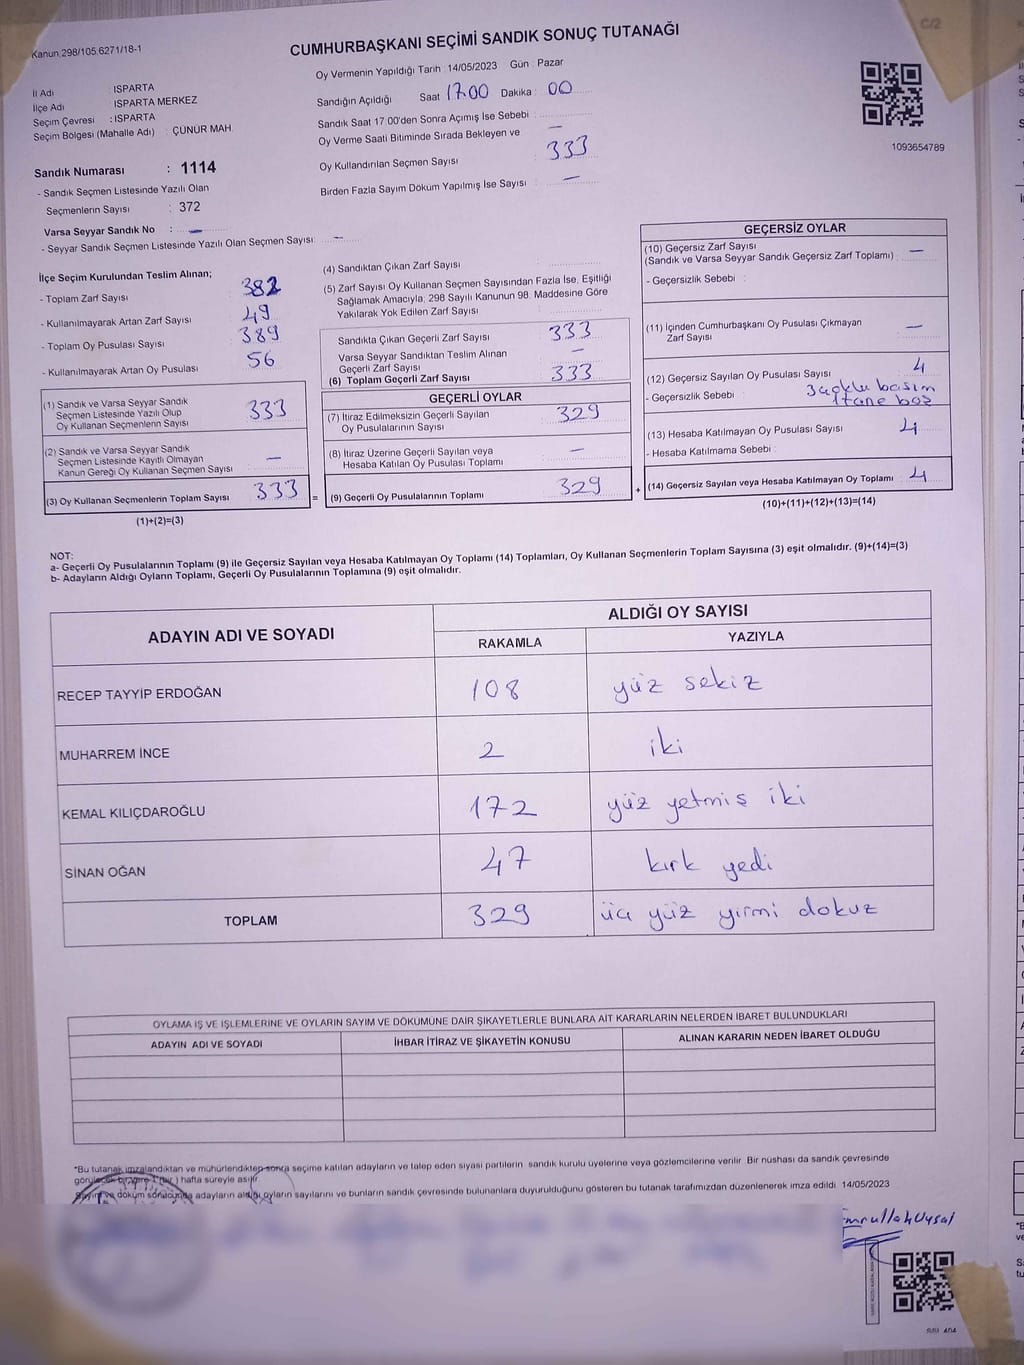 C/2
Kanun 298/105.6271/18-1
CUMHURBAŞKANI SEÇİMİ SANDIK SONUÇ TUTANAĞI
İl Adı : ISPARTA
İlçe Adı ISPARTA MERKEZ
Seçim Çevresi : ISPARTA
Seçim Bölgesi (Mahalle Adı) : ÇÜNÜR MAH.
Oy Vermenin Yapıldığı Tarih : 14/05/2023 Gün : Pazar
Sandığın Açıldığı Saat 17.00 Dakika : 00
Sandık Saat 17.00'den Sonra Açımış İse Sebebi :
Oy Verme Saati Bitiminde Sırada Bekleyen ve —
Oy Kullandırılan Seçmen Sayısı : 333
Birden Fazla Sayım Döküm Yapılmış İse Sayısı : —
1093654789
Sandık Numarası : 1114
- Sandık Seçmen Listesinde Yazılı Olan
Seçmenlerin Sayısı : 372
Varsa Seyyar Sandık No : —
- Seyyar Sandık Seçmen Listesinde Yazılı Olan Seçmen Sayısı: —
İlçe Seçim Kurulundan Teslim Alınan;
- Toplam Zarf Sayısı : 382
- Kullanılmayarak Artan Zarf Sayısı : 49
- Toplam Oy Pusulası Sayısı : 389
- Kullanılmayarak Artan Oy Pusulası : 56
(1) Sandık ve Varsa Seyyar Sandık
Seçmen Listesinde Yazılı Olup
Oy Kullanan Seçmenlerin Sayısı : 333
(2) Sandık ve Varsa Seyyar Sandık
Seçmen Listesinde Kayıtlı Olmayan
Kanun Gereği Oy Kullanan Seçmen Sayısı : —
(3) Oy Kullanan Seçmenlerin Toplam Sayısı : 333 =
(1)+(2)=(3)
(4) Sandıktan Çıkan Zarf Sayısı :
(5) Zarf Sayısı Oy Kullanan Seçmen Sayısından Fazla İse, Eşitliği
Sağlamak Amacıyla, 298 Sayılı Kanunun 98. Maddesine Göre
Yakılarak Yok Edilen Zarf Sayısı :
Sandıkta Çıkan Geçerli Zarf Sayısı : 333
Varsa Seyyar Sandıktan Teslim Alınan
Geçerli Zarf Sayısı : —
(6) Toplam Geçerli Zarf Sayısı : 333
GEÇERLİ OYLAR
(7) İtiraz Edilmeksizin Geçerli Sayılan
Oy Pusulalarının Sayısı : 329
(8) İtiraz Üzerine Geçerli Sayılan veya
Hesaba Katılan Oy Pusulası Toplamı : —
(9) Geçerli Oy Pusulalarının Toplamı : 329 +
GEÇERSİZ OYLAR
(10) Geçersiz Zarf Sayısı
(Sandık ve Varsa Seyyar Sandık Geçersiz Zarf Toplamı) : —
- Geçersizlik Sebebi :
(11) İçinden Cumhurbaşkanı Oy Pusulası Çıkmayan
Zarf Sayısı : —
(12) Geçersiz Sayılan Oy Pusulası Sayısı : 4
- Geçersizlik Sebebi : 3 basım
1 tane boş
(13) Hesaba Katılmayan Oy Pusulası Sayısı : 4
- Hesaba Katılmama Sebebi :
(14) Geçersiz Sayılan veya Hesaba Katılmayan Oy Toplamı : 4
(10)+(11)+(12)+(13)=(14)
NOT:
a- Geçerli Oy Pusulalarının Toplamı (9) ile Geçersiz Sayılan veya Hesaba Katılmayan Oy Toplamı (14) Toplamları, Oy Kullanan Seçmenlerin Toplam Sayısına (3) eşit olmalıdır. (9)+(14)=(3)
b- Adayların Aldığı Oyların Toplamı, Geçerli Oy Pusulalarının Toplamına (9) eşit olmalıdır.
ADAYIN ADI VE SOYADI
ALDIĞI OY SAYISI
RAKAMLA YAZIYLA
RECEP TAYYİP ERDOĞAN 108 yüz sekiz
MUHARREM İNCE 2 iki
KEMAL KILIÇDAROĞLU 172 yüz yetmiş iki
SİNAN OĞAN 47 kırk yedi
TOPLAM 329 üç yüz yirmi dokuz
OYLAMA İŞ VE İŞLEMLERİNE VE OYLARIN SAYIM VE DÖKÜMÜNE DAİR ŞİKAYETLERLE BUNLARA AİT KARARLARIN NELERDEN İBARET BULUNDUKLARI
ADAYIN ADI VE SOYADI İHBAR İTİRAZ VE ŞİKAYETİN KONUSU ALINAN KARARIN NEDEN İBARET OLDUĞU
*Bu tutanak imzalandıktan ve mühürlendikten sonra seçime katılan adayların ve talep eden siyasi partilerin sandık kurulu üyelerine veya gözlemcilerine verilir. Bir nüshası da sandık çevresinde
görülecek bir yere 1 (bir) hafta süreyle asılır.
Sayım ve döküm sonucunda adayların aldığı oyların sayılarını ve bunların sandık çevresinde bulunanlara duyurulduğunu gösteren bu tutanak tarafımızdan düzenlenerek imza edildi. 14/05/2023
Emrullah Uysal